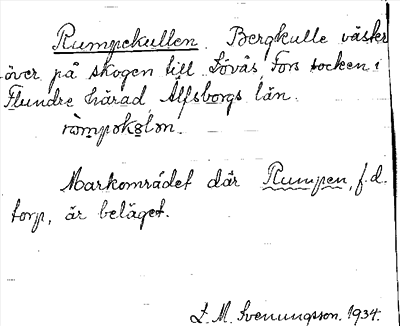 Rumpekullen. Bergkulle väster
över på skogen till Lövås, Fors socken i
Flundre härad, Älfsborgs län.
ròmpokələn.
Markområdet där Rumpen, f.d.
torp, är beläget.
L. M. Svenungsson. 1934.